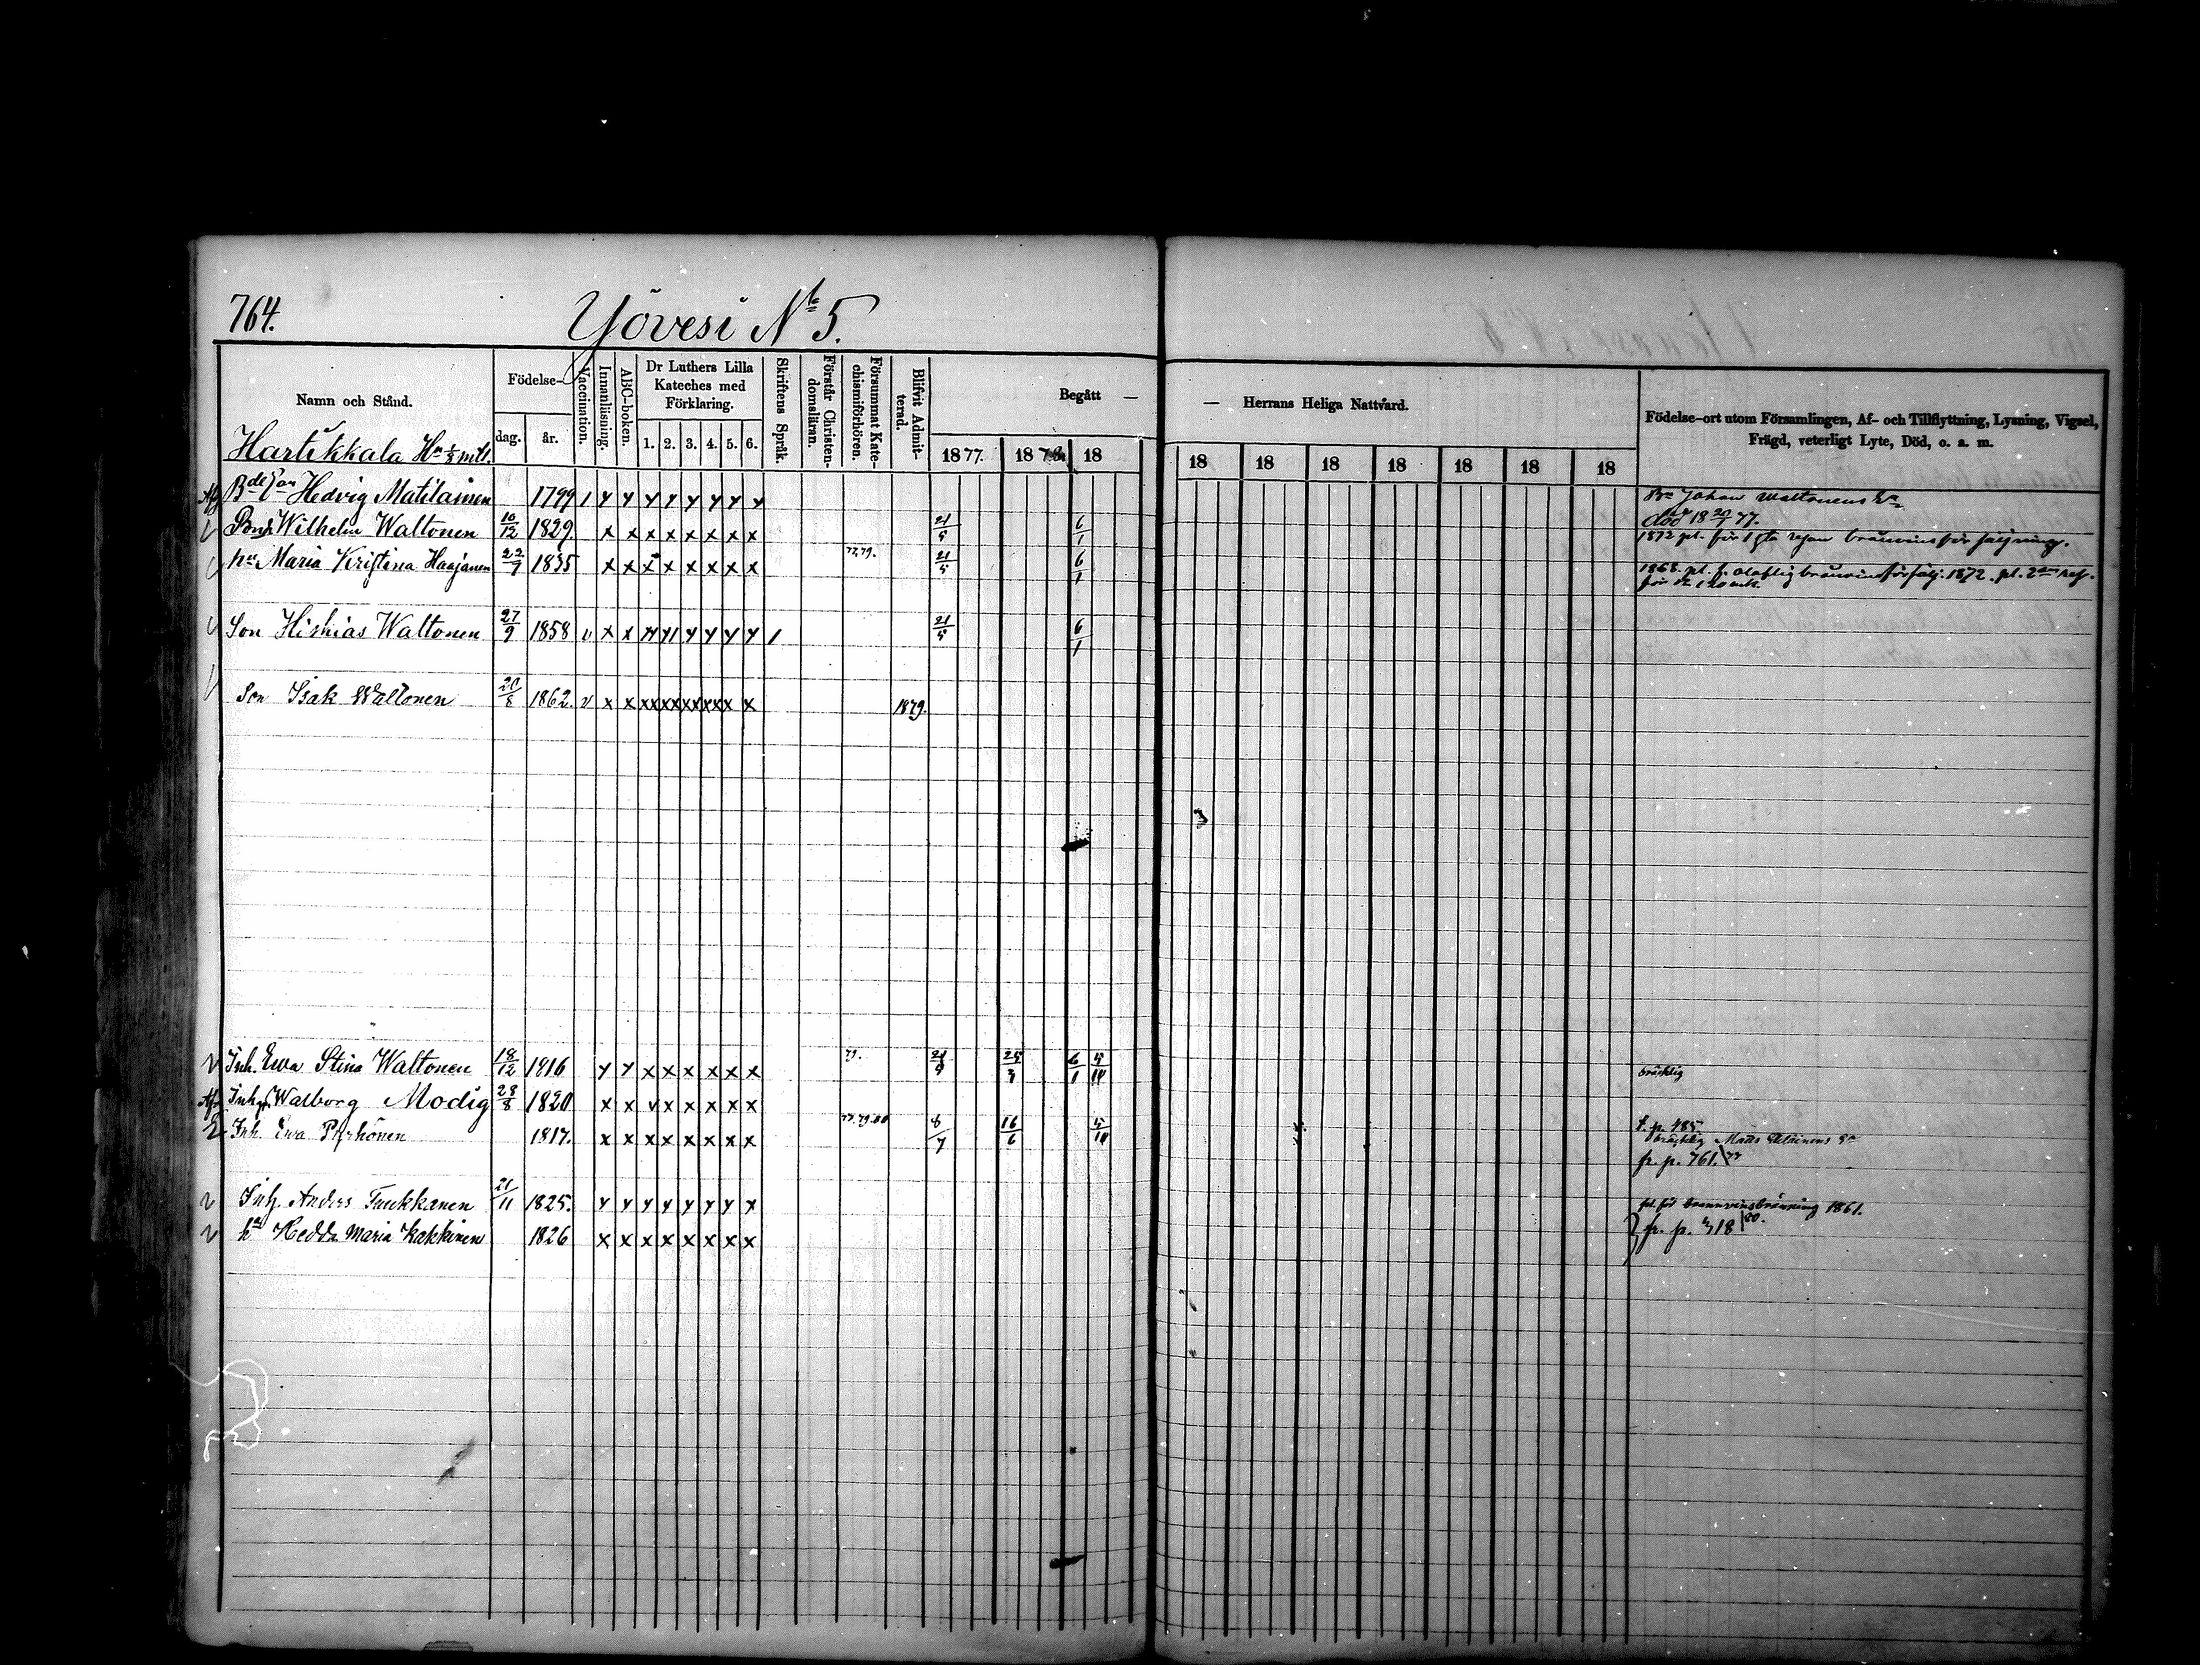 764.
Yövesi No 5.
Namn och Stånd.
Födelse-
dag.
år.
Vaccination.
Innanläsning.
ABC-boken.
Dr Luthers Lilla Kateches med Förklaring.
1. 2. 3. 4. 5. 6.
Skriftens Språk.
Förstår Christen-domsläran.
Försummat Kate-chismiförhören.
Blifvit Admit-terad.
Begått —
— Herrans Heliga Nattvard.
1877. 1878 18 18 18 18 18 18 18 18
Födelse-ort utom Församlingen, Af- och Tillflyttning, Lysning, Vigsel, Frägd, veterligt Lyte, Död, o. a. m.
Hartikkala Hn 1/3 mtl.
Hedvig Matilainen 1799 1 y y y y y y y y
Bn Johan Waltonens
död 18 20/7 77.
Wilhelm Waltonen 10/12 1829 x x x x x x x x 21/5 6/1
1872 pl. för 1sta resan bränvinsförsäljning.
hu Maria Kristina Haajanen 22/7 1835 x x x x x x x x 77,79. 21/5 6/1
1868. pl. f. olaflig bränvinsförsälj. 1872. pl.
Son Hiskias Waltonen 27/9 1858 v x x y y y y y y 1 21/5 6/1
Son Isak Waltonen 20/8 1862. v x x xx xx xx xx x x 1879.
Inh. Ewa Stina Waltonen 18/12 1816 y y x x x x x x 79. 6/1
bräcklig
Walborg Modig 28/8 1820 x x x x x x x x
f. p. 485.
Inh Ewa Pyrhönen 1817. x x x x x x x x 8/7 16/6
bräcklig Matts
fr. p. 761. 77
Inh. Anders Tuukkanen 21/11 1825. y y y y y y y x
pl. för brännvinsbränning 1861.
hu Hedda Maria Kakkinen 1826 x x x x x x x x
fr. p. 718 80.